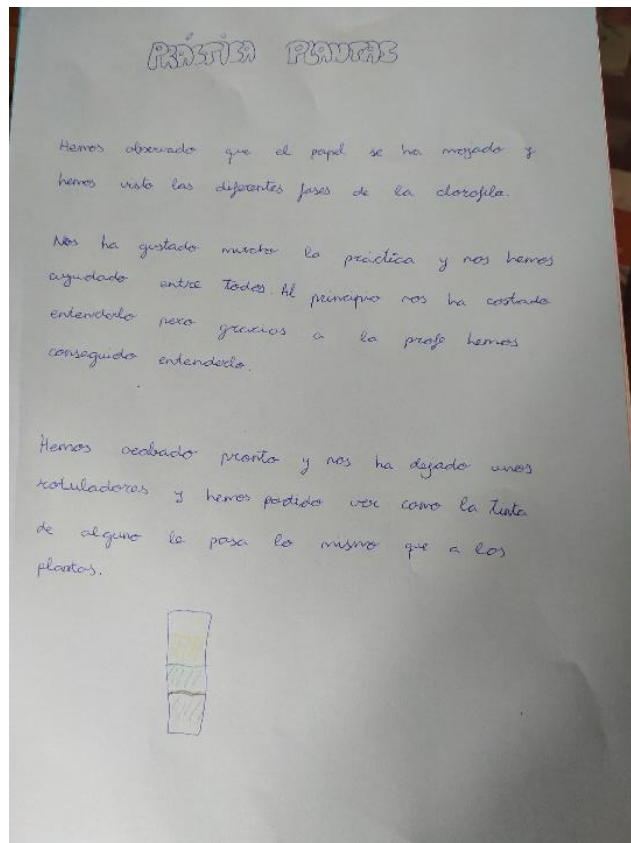 PRÁCTICA PLANTAS
Hemos observado que el papel se ha mojado y
hemos visto las diferentes fases de la clorofila.
Nos ha gustado mucho la práctica y nos hemos
ayudado entre todos. Al principio nos ha costado
entenderlo pero gracias a la profe hemos
conseguido entenderlo.
Hemos acabado pronto y nos ha dejado unos
rotuladores y hemos podido ver como la tinta
de alguno le pasa lo mismo que a las
plantas.